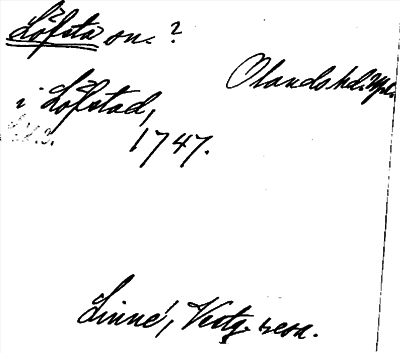 Löfsta sn.?
Olands hd. Upl.
i Löfstad,
1747.
Linné, Vestg. resa.